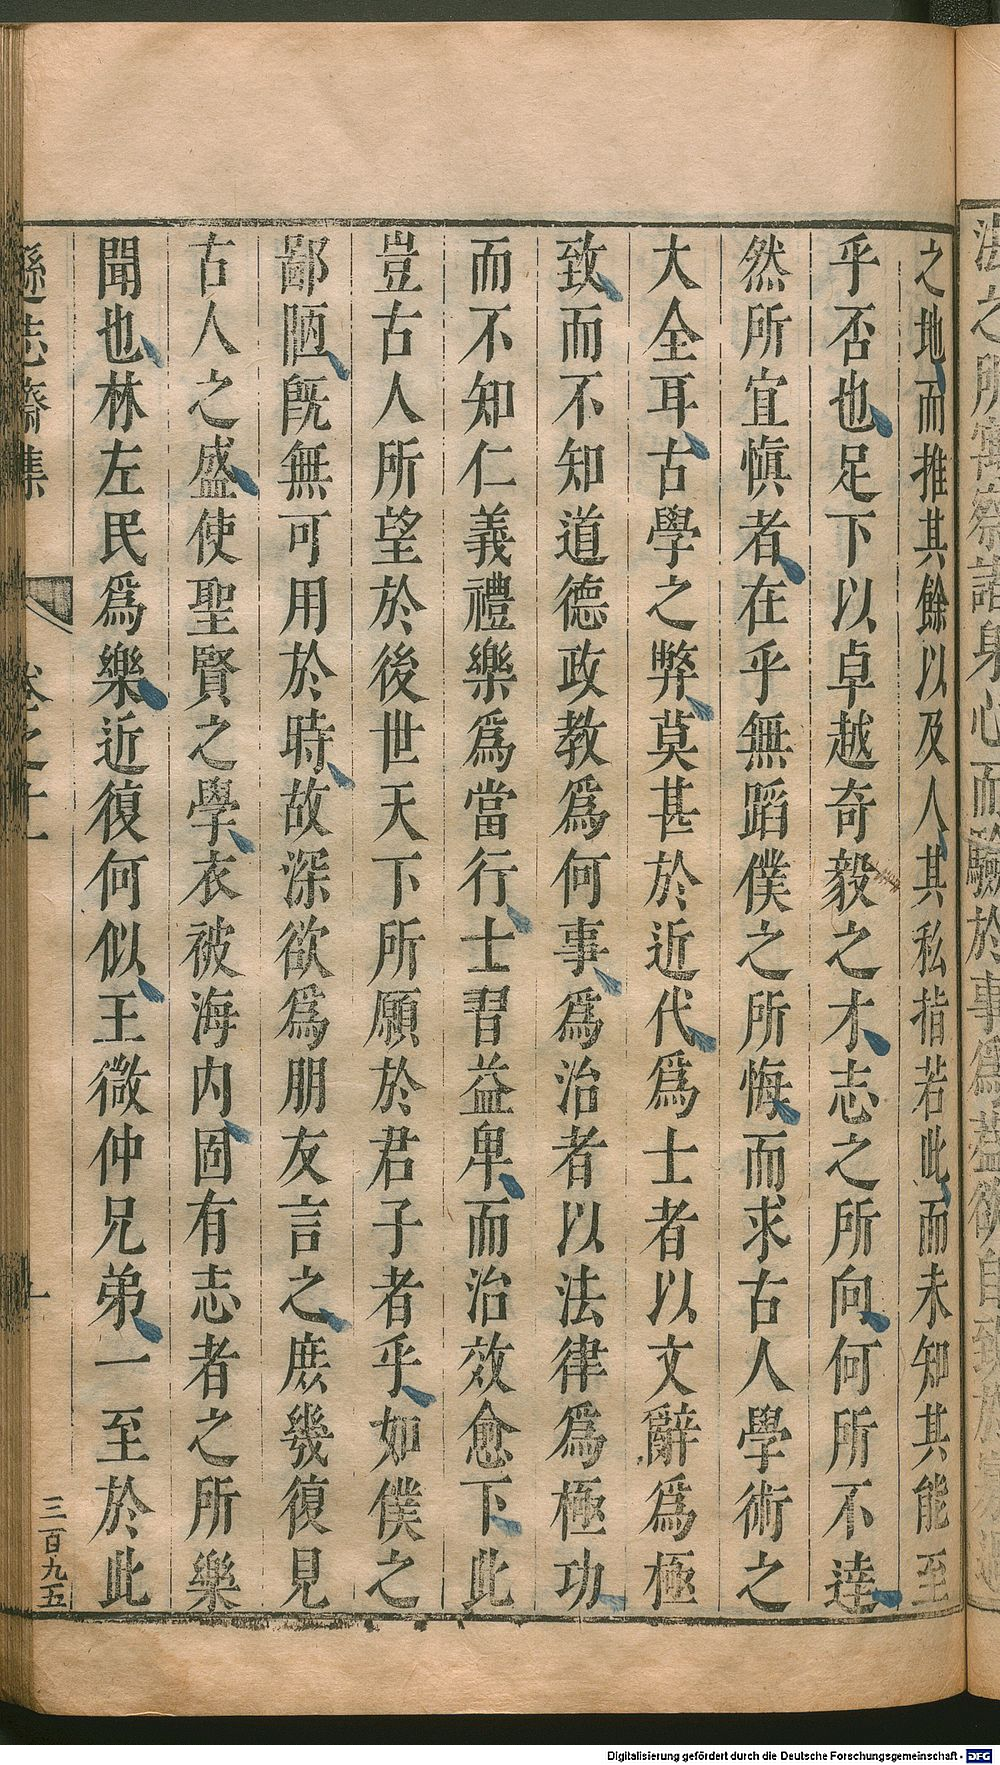 之地而推其餘以及人其私指若此而未知其能至
乎否也足下以卓越奇毅之才志之所向何所不達
然所宜愼者在乎無蹈僕之所悔而求古人學術之
大全耳古學之弊莫甚於近代爲士者以文辭爲極
致而不知道德政教爲何事爲治者以法律爲極功
而不知仁義禮樂爲當行士習益卑而治效愈下此
豈古人所望於後世天下所願於君子者乎如僕之
鄙陋旣無可用於時故深欲爲朋友言之庶幾復見
古人之盛使聖賢之學衣被海内固有志者之所樂
聞也林左民爲樂近復何似王微仲兄弟一至於此
遜志齋集
卷之十
三百九五
Digitalisierung gefördert durch die Deutsche Forschungsgemeinschaft - DFG